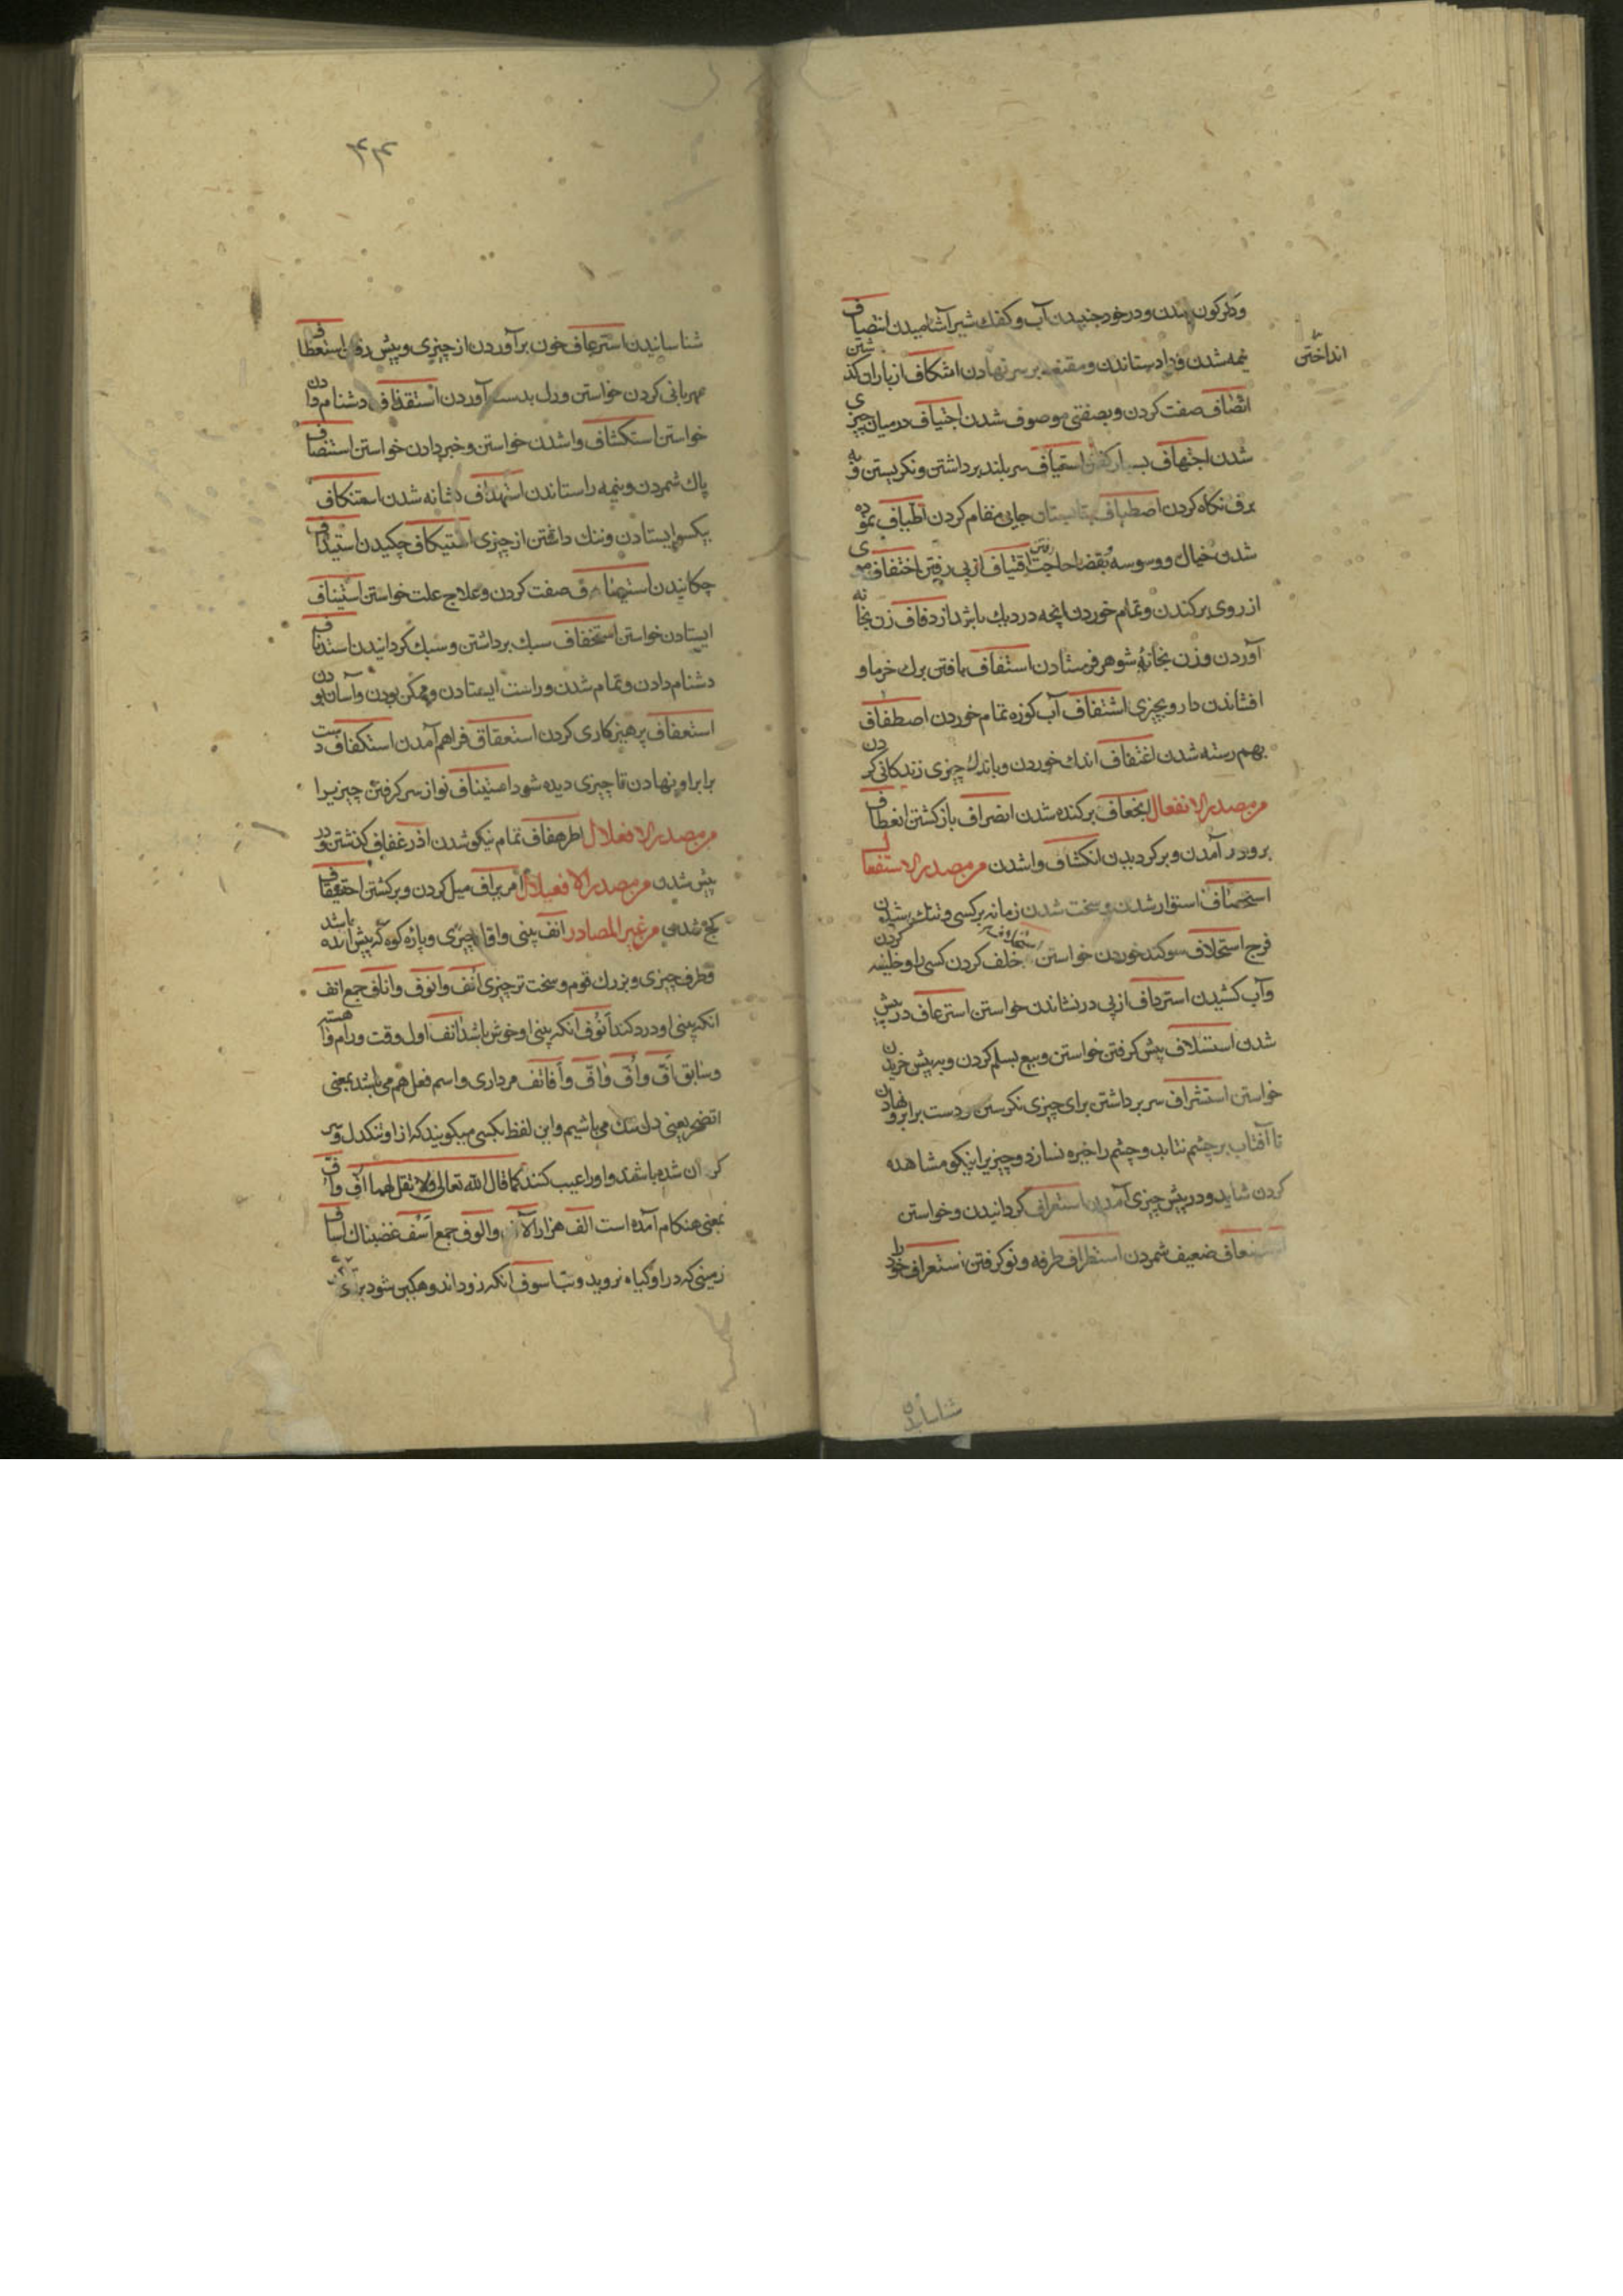 ودگرگون شدن و در خود جنبیدن آب و کفک شیر آشامیدن انتصاف
نیمه شدن و داد ستاندن و مقنعه بر سر نهادن اشکاف از باران گذشتن
انداختن
اتصاف صفت کردن و بصفتی موصوف شدن اجتیاف در میان چیزی
شدن اجتهاف بسیار گرفتن استیاف سر بلند برداشتن و نگریستن و به
برق نگاه کردن اصطیاف بتابستان جایی مقام کردن اطیاف نموده
شدن خیال و وسوسه و بقضا حاجت رفتن اقتیاف از پی رفتن اختفاف موی
از روی برکندن و تمام خوردن انچه در دیک باشد ازدفاف زن بخانه
آوردن و زن بخانهٔ شوهر فرستادن استفاف بافتن برک خرما و
افشاندن دارو بچیزی اشتفاف آب کوزه تمام خوردن اصطفاف
بهم رسته شدن اغتفاف اندک خوردن و باندک چیزی زندکانی کردن
من مصدر الانفعال انجعاف برکنده شدن انصراف بازکشتن انعطاف
برو در آمدن و برکردیدن انکشاف واشدن من مصدر الاستفعال
استحصاف استوار شدن و سخت شدن زمانه بر کسی و تنک شدن
فرج استحلاف سوکند خوردن خواستن استخلاف خلف کردن کسی را و خلیفه کردن
وآب کشیدن استرداف از پی در نشاندن خواستن استرعاف در پیش
شدن استسلاف پیش کرفتن خواستن و بیع بسلم کردن و به پیش خریدن
خواستن استشراف سر برداشتن برای چیزی نکرستن و دست بر ابرو نهادن
تا آفتاب بر چشم نتابد و چشم را خیره نسازد و چیزیرا نیکو مشاهده
کردن شاید و در پیش چیزی آمدن استصراف کردانیدن و خواستن
استضعاف ضعیف شمردن استطراف طرفه و نو کرفتن استعراف خود را
شناسانیدن
۴۴
شناسانیدن استرعاف خون برآوردن از چیزی و پیش رفتن استعطاف
مهربانی کردن خواستن و دل بدست آوردن استقذاف دشنام دادن
خواستن استکشاف واشدن خواستن و خبر دادن خواستن استنصاف
پاک شمردن و نیمه را ستاندن استهداف نشانه شدن استنکاف
یکسو ایستادن و ننک داشتن از چیزی استیکاف چکیدن استیداف
چکانیدن استیصاف صفت کردن و علاج علت خواستن استیقاف
ایستادن خواستن استخفاف سبک برداشتن و سبک کردانیدن استدفاف
دشنام دادن و تمام شدن و راست ایستادن و ممکن بودن و آسان بودن
استعفاف پرهیزکاری کردن استعقاق فراهم آمدن استکفاف دست
برابر او نهادن تا چیزی دیده شود استیناف نو از سر کرفتن چیزیرا
من مصدر الافعلال اطرهفاف تمام نیکو شدن اذرغفاف کذشتن و در
پیش شدن من مصدر الافعیلال امریراف میل کردن و برکشتن احقیقاف
کج شدن من غیر المصادر انف بینی و اول چیزی و پاره کوه که پیش آمده باشد
و طرف چیزی و بزرک قوم و سخت تر چیزی انف و انوف و اناف جمع انف
انکه بینی او درد کند انوف انکه بینی او خوش باشد انف اول وقت و رام و آهسته
و سابق اف و اف و اف و افائف مرداری و اسم فعل هم می باشد بمعنی
اتضجر یعنی دل تنک می باشیم و این لفظ بکسی میکویند که از او تنکدل و سر
کران شده باشند و او را عیب کنند کما قال الله تعالی ولا تقل لهما اف و اف
بمعنی هنکام آمده است الف هزار آلاف والوف جمع اسف غضبناک اساف
زمینی که در او کیاه نروید و تاسوف انکه زود اندوهکین شود برای